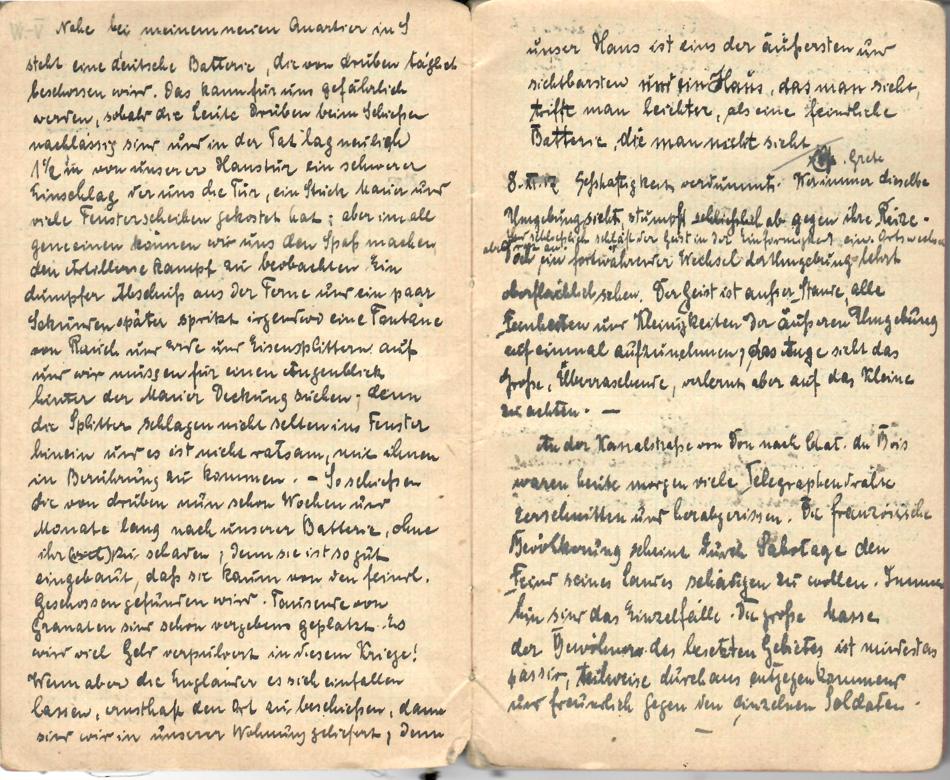 Nahe bei meinem neuen Quartier in S
steht eine deutsche Batterie, die von drüben täglich
beschossen wird. Das kann für uns gefährlich
werden, sobald die Leute drüben beim Schießen
nachlässig sind und in der Tat lag neulich
1½ m von unserer Haustür ein schwerer
Einschlag der uns die Tür, ein Stück Mauer und
viele Fensterscheiben gekostet hat; aber im all
gemeinen können wir uns den Spaß machen
den Artilleriekampf zu beobachten. Ein
dumpfer Abschuß aus der Ferne und ein paar
Sekunden später spritzt irgendwo eine Fontäne
von Rauch und Erde und Eisensplittern auf
und wir müssen für einen Augenblick
hinter der Mauer Deckung suchen; denn
die Splitter schlagen nicht selten ins Fenster
hinein und es ist nicht ratsam, mit ihnen
in Berührung zu kommen. – So schießen
die von drüben nun schon Wochen und
Monate lang nach unserer Batterie, ohne
ihr zu schaden; denn sie ist so gut
eingebaut, daß sie kaum von den feindl.
Geschossen gefunden wird. Tausende von
Granaten sind schon vergebens geplatzt. Es
wird viel Geld verpulvert in diesem Kriege!
Wenn aber die Engländer es sich einfallen
lassen, ernsthaft den Ort zu beschießen, dann
sind wir in unserer Wohnung geliefert; denn
unser Haus ist eins der äußersten und
sichtbarsten und ein Haus, das man sieht,
trifft man leichter, als eine feindliche
Batterie, die man nicht sieht
Grete
8. Seßhaftigkeit verdummt. Wer immer dieselbe
Umgebung sieht, stumpft schließlich ab gegen ihre Reize.
und schließlich schläft der Geist in der Einförmigkeit ein. Ortswechsel
Doch ein fortwährender Wechsel der Umgebung lehrt
oberflächlich sehen. Der Geist ist außer Stande, alle
Feinheiten und Kleinigkeiten der äußeren Umgebung
auf einmal aufzunehmen; das Auge sieht das
Große, Überraschende, verlernt aber auf das Kleine
zu achten. —
An der Kanalstraße von Don nach Chat. du Bois
waren heute morgen viele Telegraphendrähte
zerschnitten und herabgerissen. Die französische
Bevölkerung scheint durch Sabotage den
Feind seines Landes schädigen zu wollen. Immer
hin sind das Einzelfälle. Die große Masse
der Bewohner des besetzten Gebietes ist mindestens
passiv, teilweise durchaus entgegenkommend
und freundlich gegen den einzelnen Soldaten.